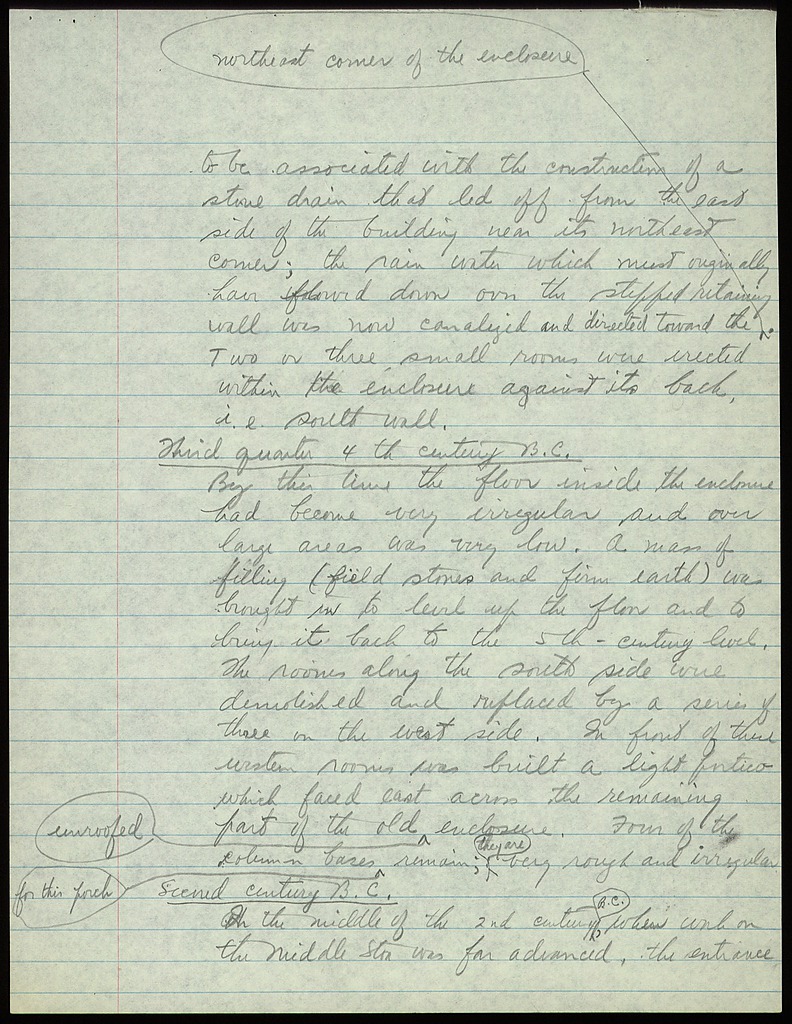 northeast corner of the enclosure
to be associated with the construction of a
stone drain that led off from the east
side of the building near its northeast
corner; the rain water which must originally
have flowed down over the stepped retaining
wall was now canalized and directed toward the
Two or three small rooms were erected
within the enclosure against its back,
i.e. south wall.
Third quarter 4th century B.C.
By this time the floor inside the enclosure
had become very irregular and over
large areas was very low. A mass of
filling (field stones and firm earth) was
brought in to level up the floor and to
bring it back to the 5th-century level.
The rooms along the south side were
demolished and replaced by a series of
three on the west side. In front of these
western rooms was built a light portico
which faced east across the remaining
unroofed
part of the old enclosure. Four of the
they are
column bases remain; very rough and irregular
for this porch
Second century B.C.
B.C.
In the middle of the 2nd century when work on
the Middle Stoa was far advanced, the entrance